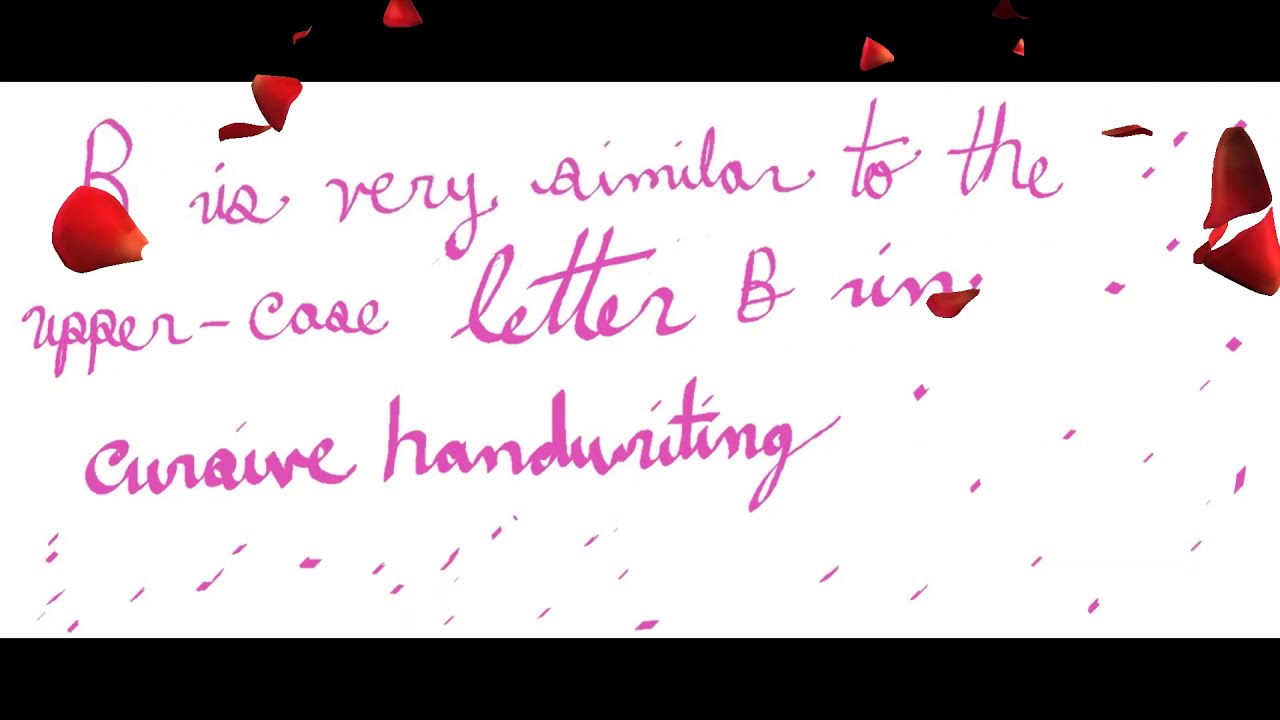 R is very similar to the
upper-case letter B in
cursive handwriting